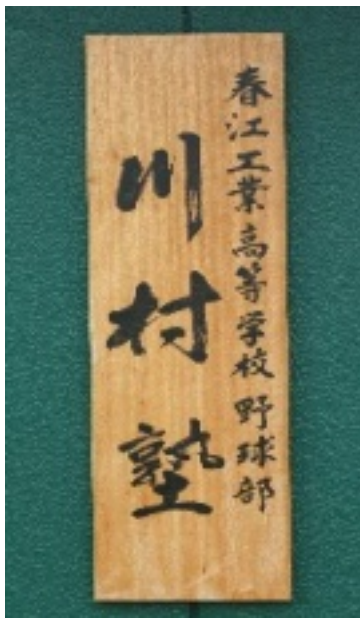 春江工業高等学校野球部
川村塾